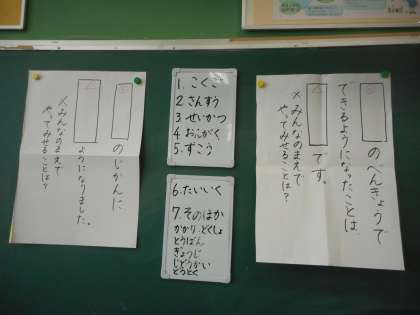 のべんきょうで
できるようになったことは
です。
×みんなのまえで
やってみせることは？
1.こくご
2 さんすう
3 せいかつ
4 おんがく
5.ずこう
6.たいいく
7.そのほか
かかり.どくしょ
とうばん
ぎょうじ
じどうかい
どうとく
のじかんに
ようになりました。
×みんなのまえで
やってみせることは？